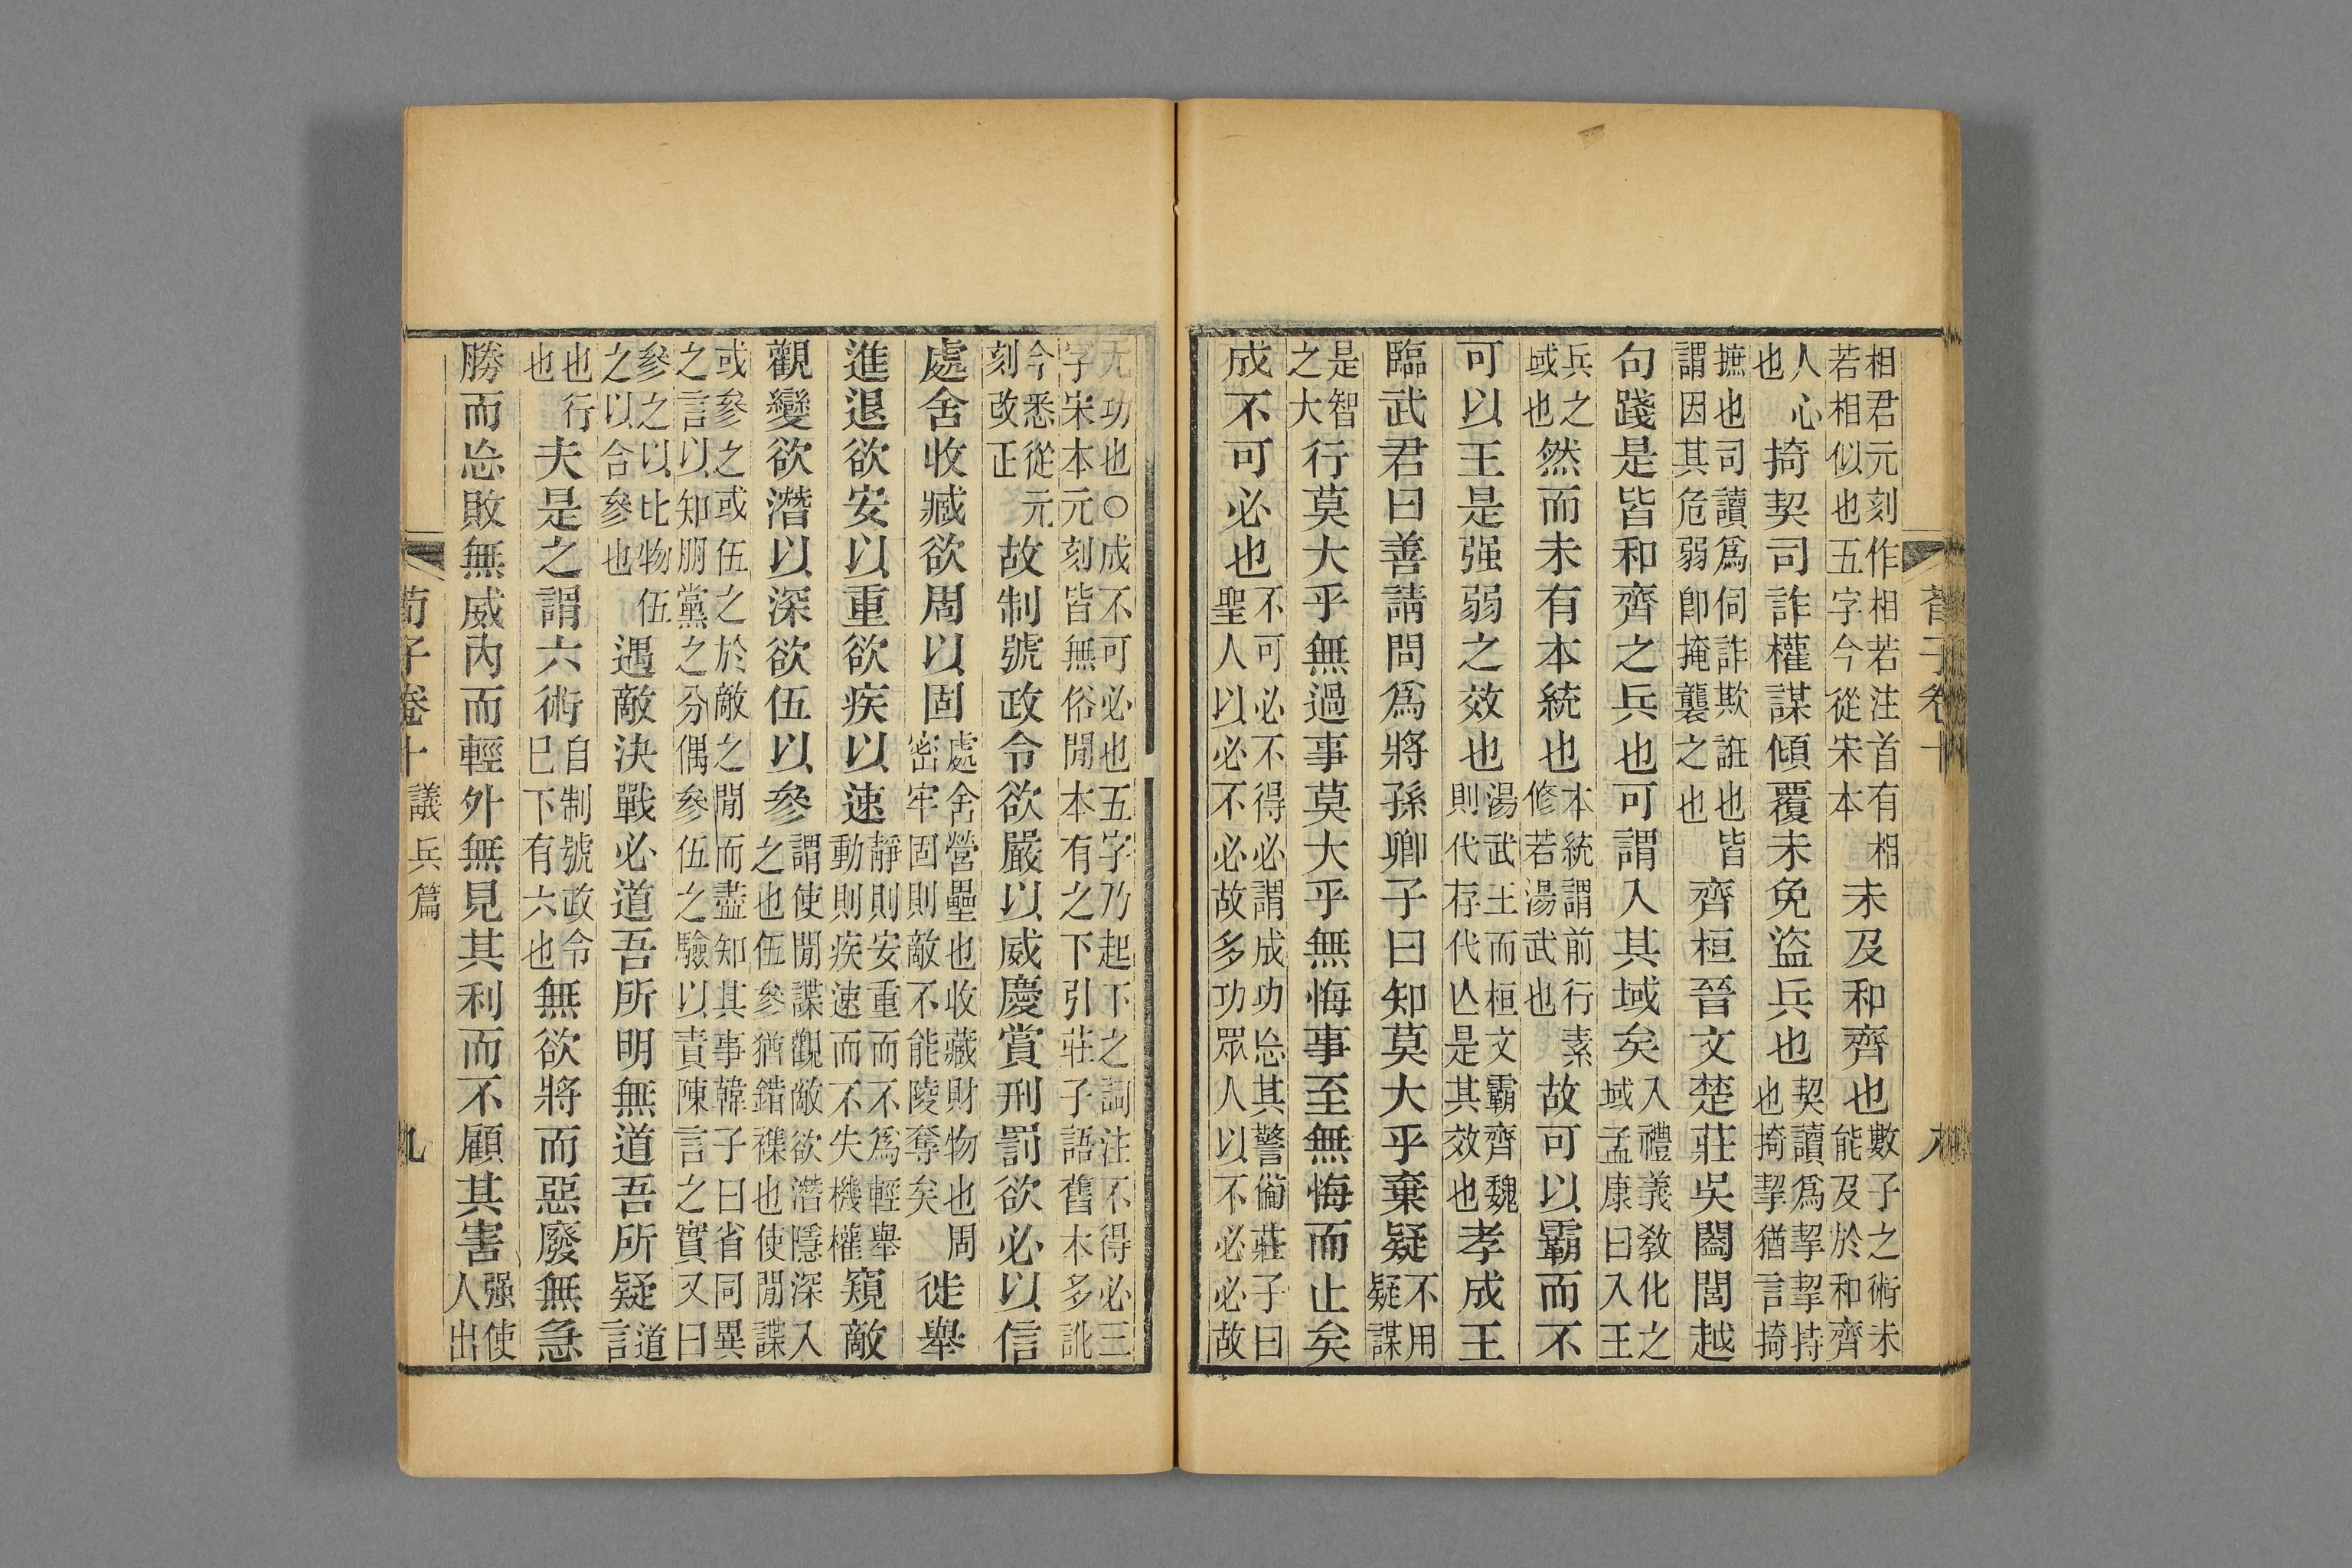 荀子卷十
相君元刻作相若注首有相
若相似也五字今從宋本
未及和齊也
數子之術未
能及於和齊
人心
也
掎契司詐權謀傾覆未免盜兵也
契讀爲挈挈持
也掎挈猶言掎
摭也司讀爲伺詐欺誑也皆
謂因其危弱卽掩襲之也
齊桓晉文楚莊吳闔閭越
句踐是皆和齊之兵也可謂入其域矣
入禮義敎化之
域孟康曰入王
兵之
域也
然而未有本統也
本統謂前行素
修若湯武也
故可以霸而不
可以王是强弱之效也
湯武王而桓文霸齊魏
則代存代亾是其效也
孝成王
臨武君曰善請問爲將孫卿子曰知莫大乎棄疑
不用
疑謀
是智
之大
行莫大乎無過事莫大乎無悔事至無悔而止矣
成不可必也
不可必不得必謂成功忘其警僃莊子曰
聖人以必不必故多功眾人以不必必故
无功也○成不可必也五字乃起下之詞注不得必三
字宋本元刻皆無俗閒本有之下引莊子語舊本多訛
今悉從元
刻改正
故制號政令欲嚴以威慶賞刑罰欲必以信
處舍收臧欲周以固
處舍營壘也收藏財物也周
密牢固則敵不能陵奪矣
徙舉
進退欲安以重欲疾以速
靜則安重而不爲輕舉
動則疾速而不失機權
窺敵
觀變欲潛以深欲伍以參
謂使閒諜觀敵欲潛隱深入
之也伍參猶錯襍也使閒諜
或參之或伍之於敵之閒而盡知其事韓子曰省同異
之言以知朋黨之分偶參伍之驗以責陳言之實又曰
參之以比物伍
之以合參也
遇敵決戰必道吾所明無道吾所疑
道
言
也行
也
夫是之謂六術
自制號政令
巳下有六也
無欲將而惡廢無急
勝而忘敗無威內而輕外無見其利而不顧其害
强使
人出
荀子卷十
議兵篇
九